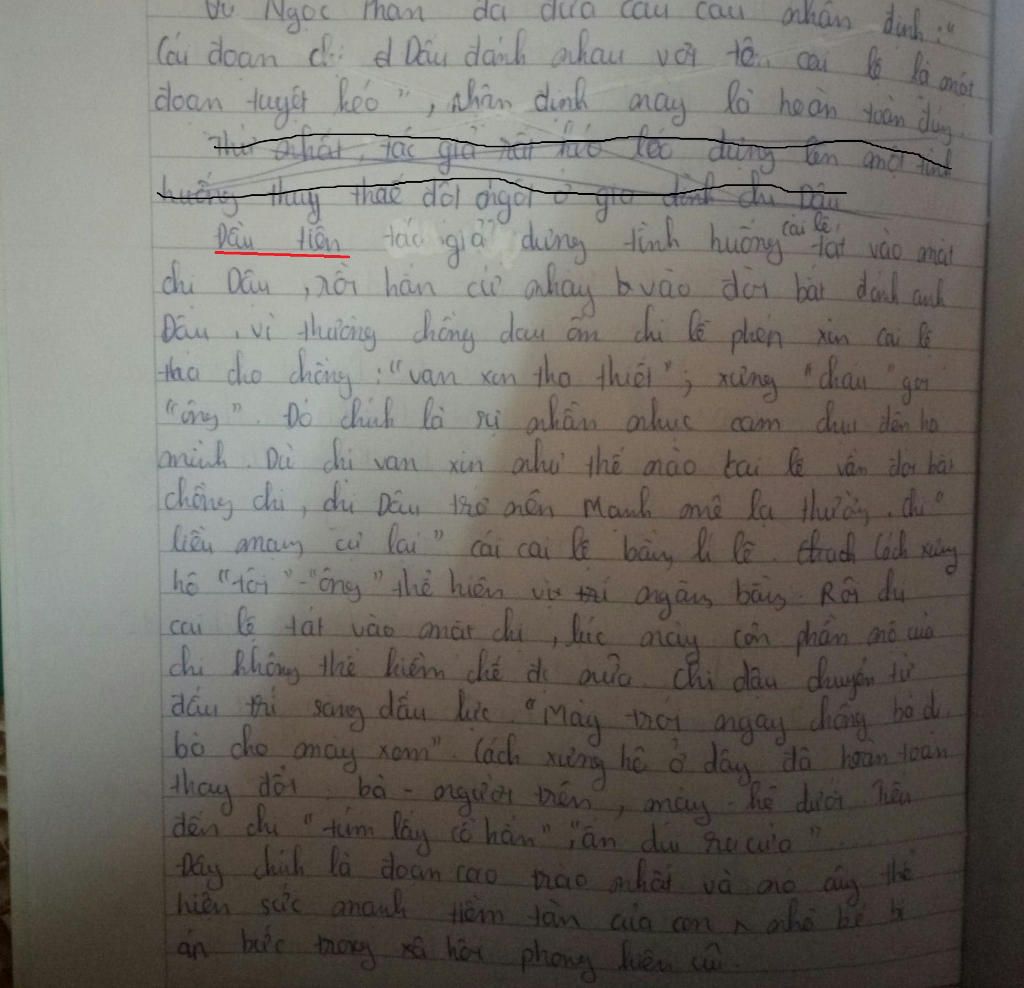 Vũ Ngọc Phan đã đưa câu câu nhân định: "
Cái đoạn chị Dậu đánh nhau với tên cai lệ là một
đoạn tuyệt kéo", nhân định nay là hoàn toàn đúng.
Thứ nhất, tác giả rất khéo léo dựng lên một tình
huống thay thế đột ngột ở gia đình chị Dậu
Đầu tiên tác giả dựng tình huống cai lệ tát vào mặt
chị Dậu, rồi hắn cứ nhảy vào đòi bắt đánh anh
Dậu, vì thương chồng đau ốm chị lễ phép xin cai lệ
tha cho chồng: "van xin tha thiết"; xưng "cháu" gọi
"ông". Đó chính là sự nhẫn nhục cam chịu đến
mình. Dù chị van xin như thế nào cai lệ vẫn đòi bắt
chồng chị, chị Dậu trở nên mạnh mẽ lạ thường. chị "
liều mạng cự lại" cái cai lệ bằng lí lẽ. Cách xưng
hô "tôi"-"ông" thể hiện vị trí ngang bằng. Rồi dù
cai lệ tát vào mặt chị, lúc này cơn phẫn nộ của
chị không thể kiềm chế đc nữa. Chị dậu chuyển từ
đấu trí sang đấu lực. "Mày trói ngay chồng bà đi
bà cho mày xem". Cách xưng hô ở đây đã hoàn toàn
thay đổi. bà - người trên, mày - kẻ dưới
đến chị "túm lấy cổ hắn", "ấn dúi ra cửa"
Đây chính là đoạn cao trào nhất và nó thể
hiện sức mạnh tiềm tàn của con nhỏ bé bị
án bức trong xã hội phong kiến cũ.